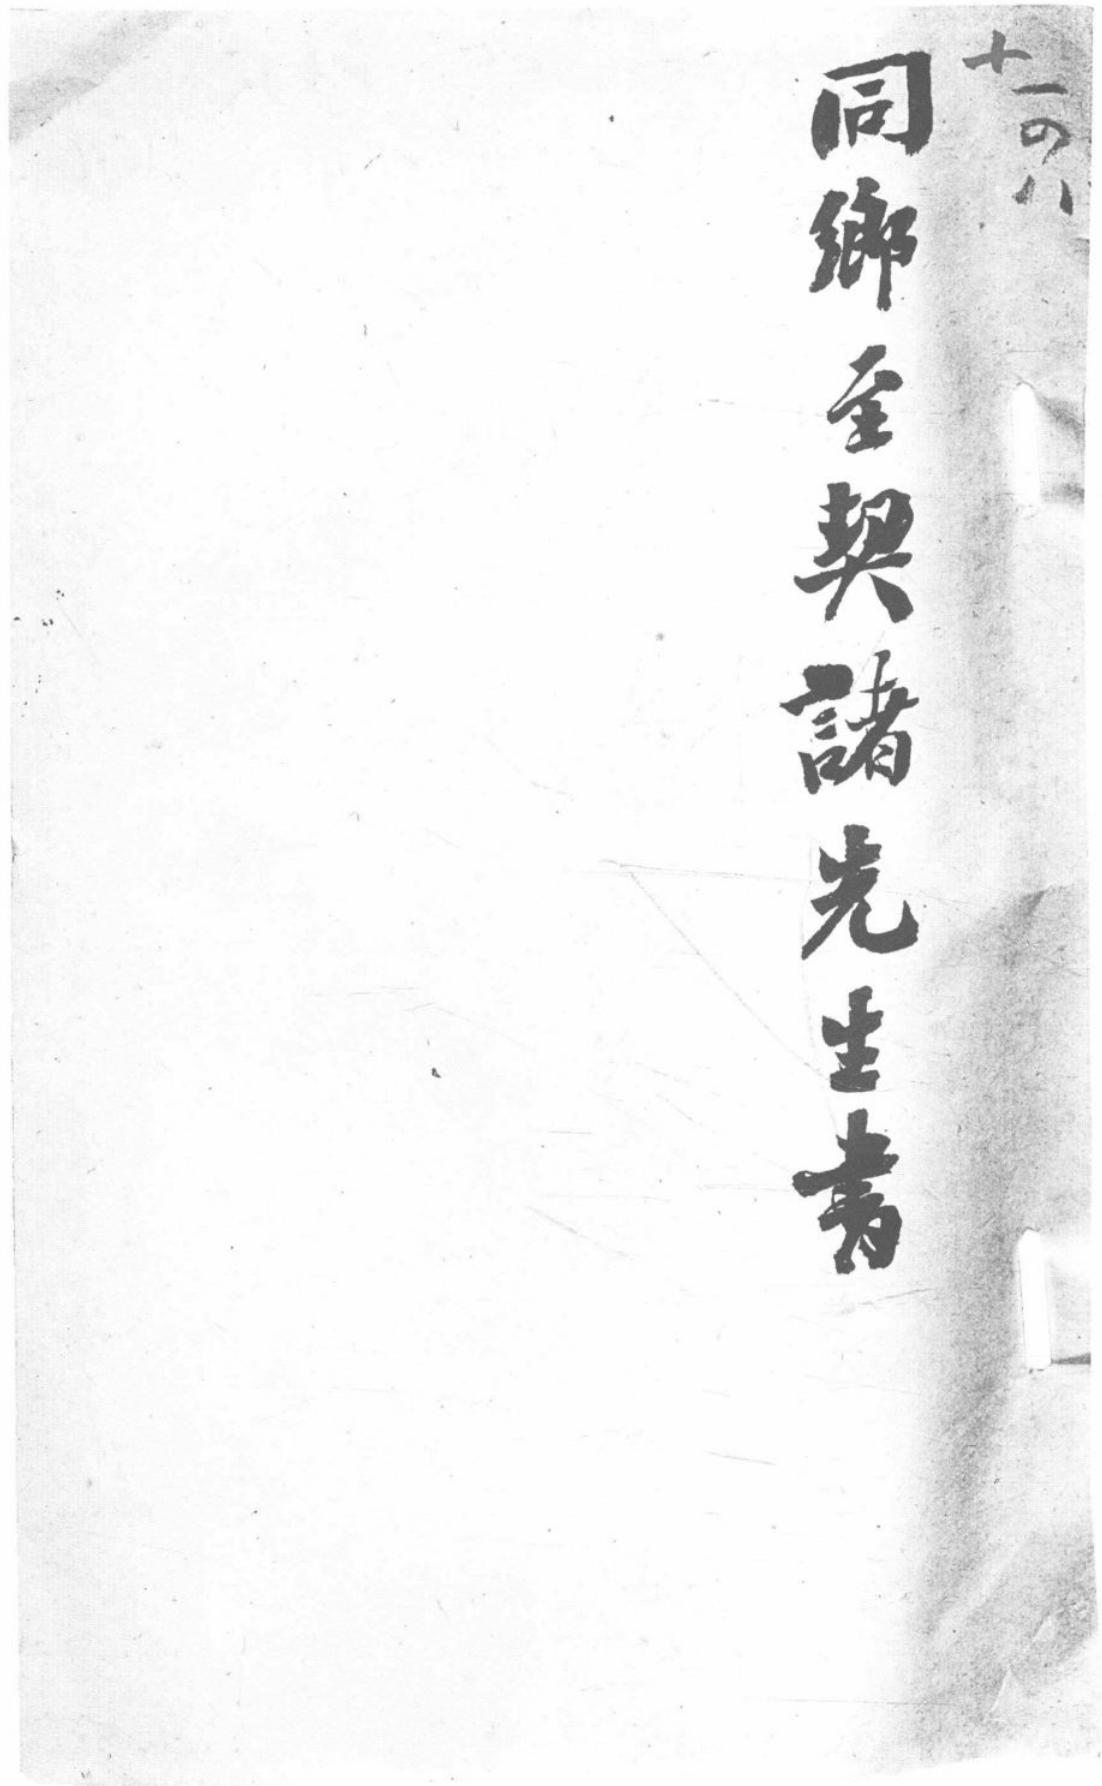 十一の八
同鄉至契諸先生書